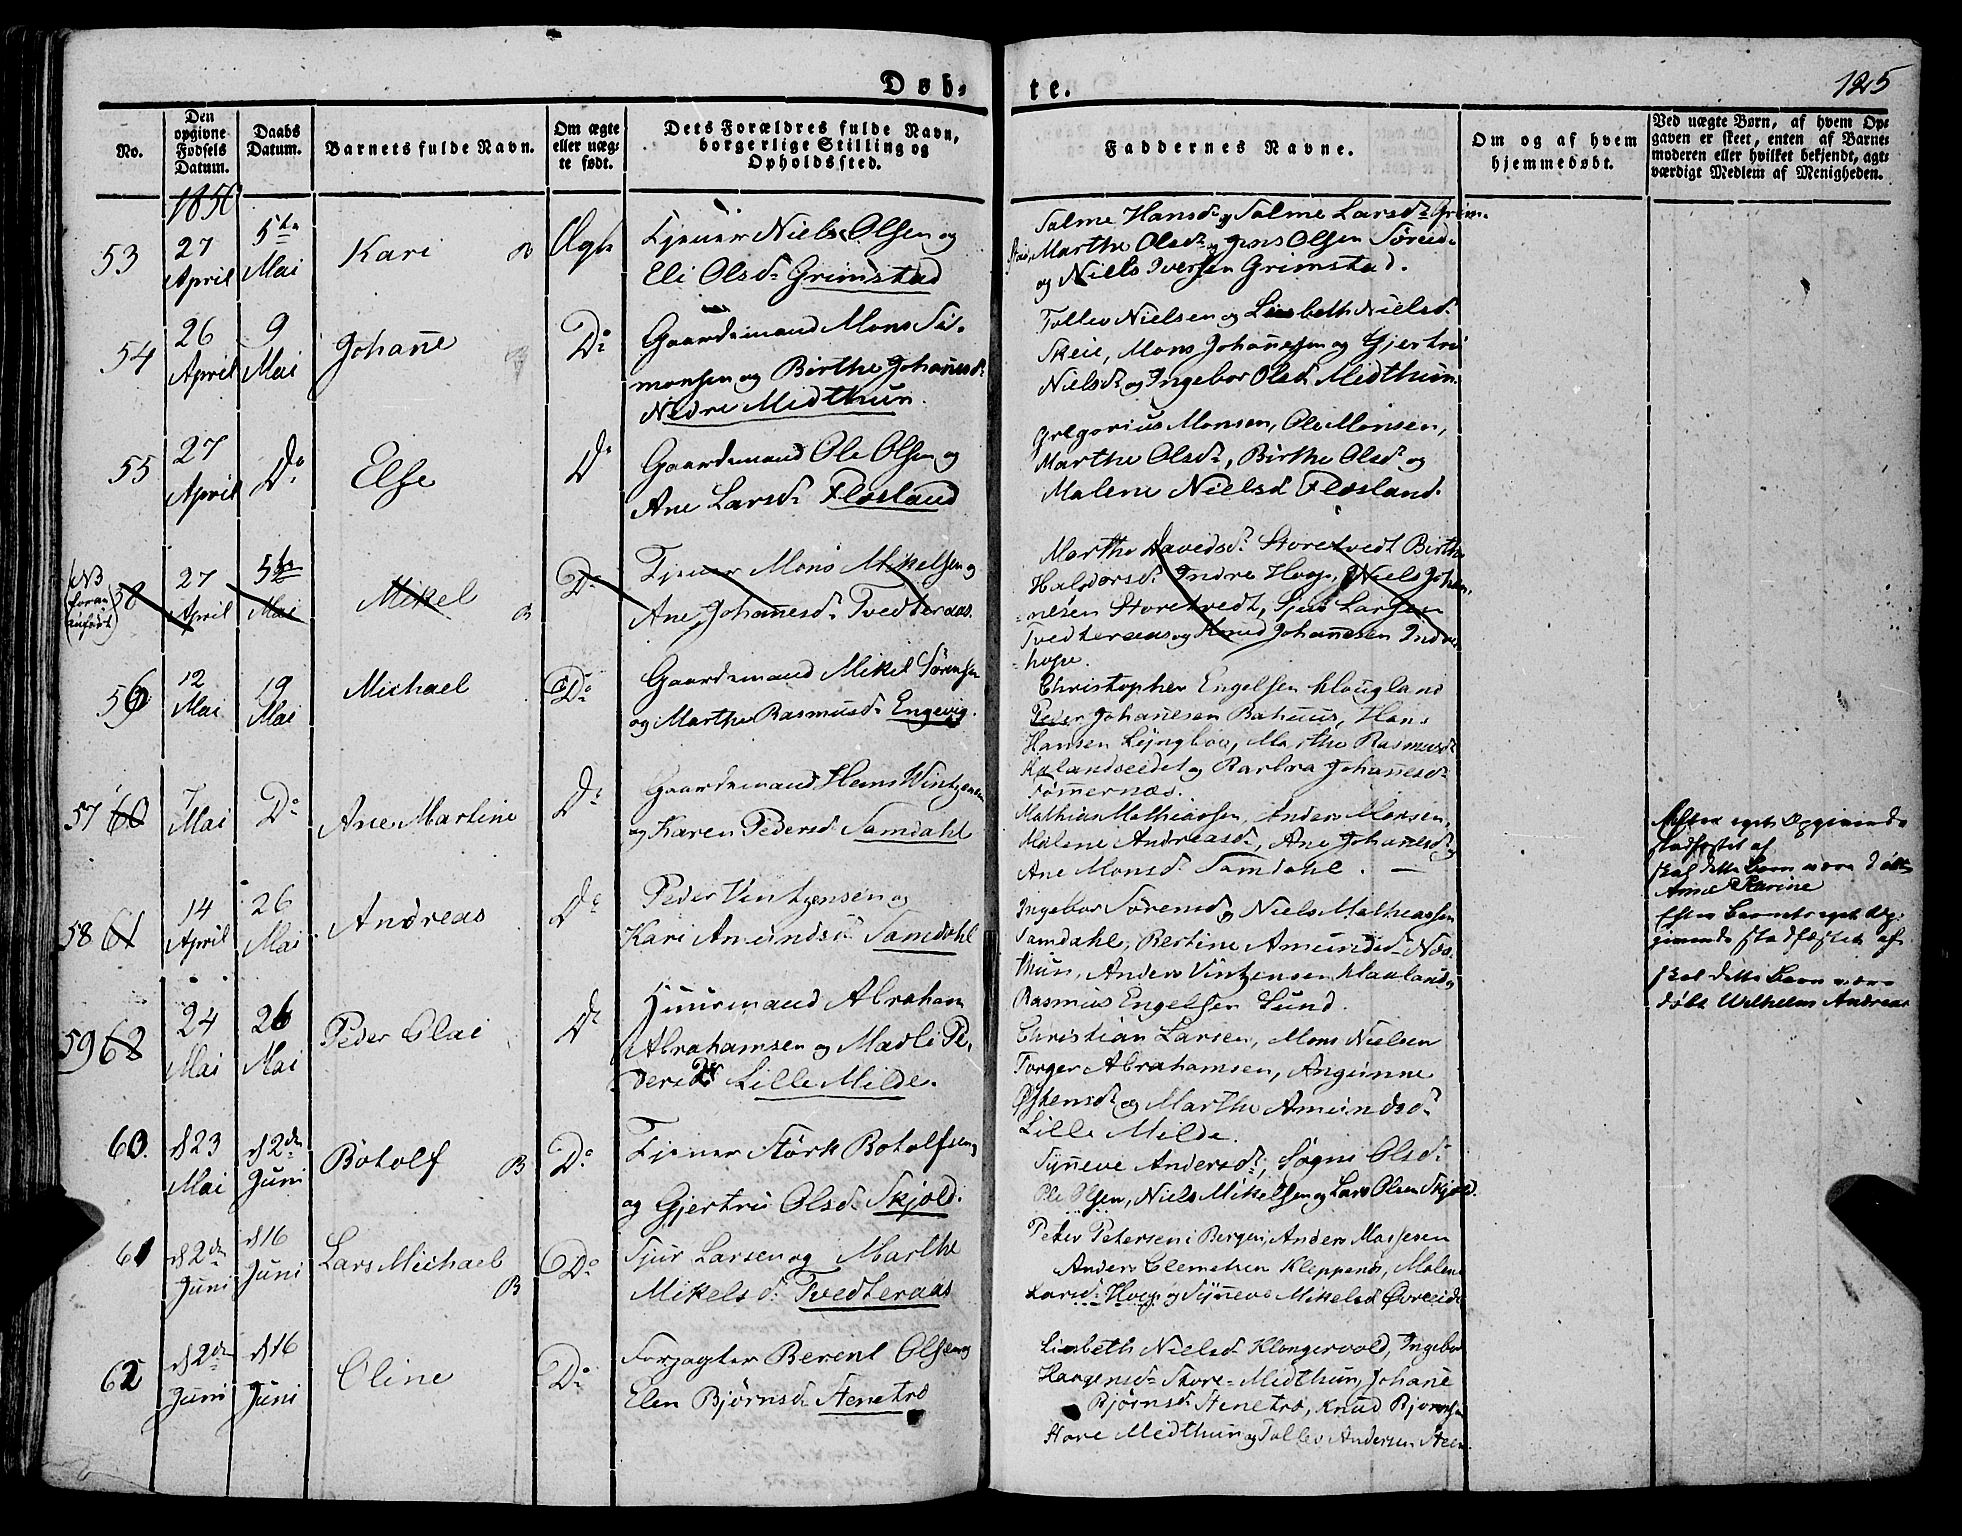 Døb-
te.
125
No.
Den opgivne Fødsels Datum.
Daabs Datum.
Barnets fulde Navn.
Om ægte eller uæg-te født.
Dets Forældres fulde Navn, borgerlige Stilling og Opholdssted.
Faddernes Navne.
Om og af hvem hjemmedøbt.
Ved uægte Børn, af hvem Op-
gaven er skeet, enten af Barne-
moderen eller hvilket bekjendt, agt-
værdigt Medlem af Menigheden.
1850
53
27 April
5te Mai
Kari B
Ægte
Tjener Niels Olsen og
Eli Olsd. Grimstad
Salme Hansd. og Salme Larsd. Grim-
stad, Marthe Olsd. og Jens Olsen Søreid
og Niels Iversen Grimstad.
54
26 April
9 Mai
Johanne
Do
Gaardemand Mons Si-
monsen og Birthe Johannesd.
Nedre Midthun.
Tollev Nielsen og Lisbeth Nielsd.
Skeie, Mons Johannesen og Gjertri
Nielsd. og Ingebor Olsd. Midthun
55
27 April
Do
Else
Do
Gaardemand Ole Olsen og
Ane Larsd. Flæsland
Gregorius Monsen, Ole Monsen,
Marthe Olsd., Birthe Olsd. og
Malene Nielsd. Flæsland.
(NB foran anført)
58
27 April
5te Mai
Mikel B
Do
Tjener Mons Mikelsen og
Ane Johannesd. Tvedteraas.
Marthe Davedsd. Storetvedt Birthe
Haldorsd. Indre Hope, Niels Johan-
nesen Storetvedt, Sjur Larsen
Tvedteraas og Knud Johannesen Indre
hope.
56
12 Mai
19 Mai
Michael
Do
Gaardemand Mikel Sørensen
og Marthe Rasmusd. Engevig.
Christopher Engelsen Hougland
Peder Johannesen Bahuus, Hans
Hansen Lyngboe, Marthe Rasmusd.
Kalandseidet og Barbra Johannesd.
Tømmernæs.
57 60
7 Mai
Do
Ane Martine
Do
Gaardemand Hans Wintzensen
og Karen Pedersd. Samdahl
Mathias Mathiassen, Anders Monsen,
Malene Andreasd., Ane Johannesd. og
Ane Monsd. Samdahl. —
Efter eget Opgivende
stadfæstet af
skal dette Barn være døbt
Anne Karine
58 61
14 April
26 Mai
Andreas
Do
Peder Vintzensen og
Kari Amundsd. Samdahl
Ingebor Sørensd. og Niels Mathiassen
Samdahl, Bertine Amundsd. Næs-
thun, Anders Vintzensen Haaland og
Rasmus Engelsen Lund.
Efter Barnets eget Op-
givende stadfæstet af
skal dette Barn være
døbt Wilhelm Andreas
59 62
24 Mai
26 Mai
Peder Olai
Do
Huusmand Abraham
Abrahamsen og Madli Pe-
dersd. Lille Milde.
Christian Larsen, Mons Nielsen
Torger Abrahamsen, Angunne
Østensd. og Marthe Amundsd.
Lille Milde.
60.
d 23 Mai
d 2den Juni
Botolf B
Do
Tjener Størk Botolfsen
og Gjertru Olsd. Skjold.
Synneve Andersd., Sogni Olsd.
Ole Olsen, Niels Mikelsen og Lars Olsen Skjold.
61
d 2den Juni
d 16 Juni
Lars Michael B
Do
Sjur Larsen og Marthe
Mikelsd. Tvedteraas
Peter Petersen i Bergen, Anders Monsen
Anders Clemetsen Kleppenes, Malene
Larsd. Hope og Synneve Mikelsd. Øvreeide
62
d 2den Juni
d 16 Juni
Oline
Do
Forpagter Berent Olsen og
Elen Bjørnsd. Stenetræ
Lisbeth Nielsd. Klongervold, Ingebor
Haagensd. Store-Midthun, Johane
Bjørnsd. Stenetræ, Knud Bjørnsen
Store Midthun og Tollev Andersen Steen.